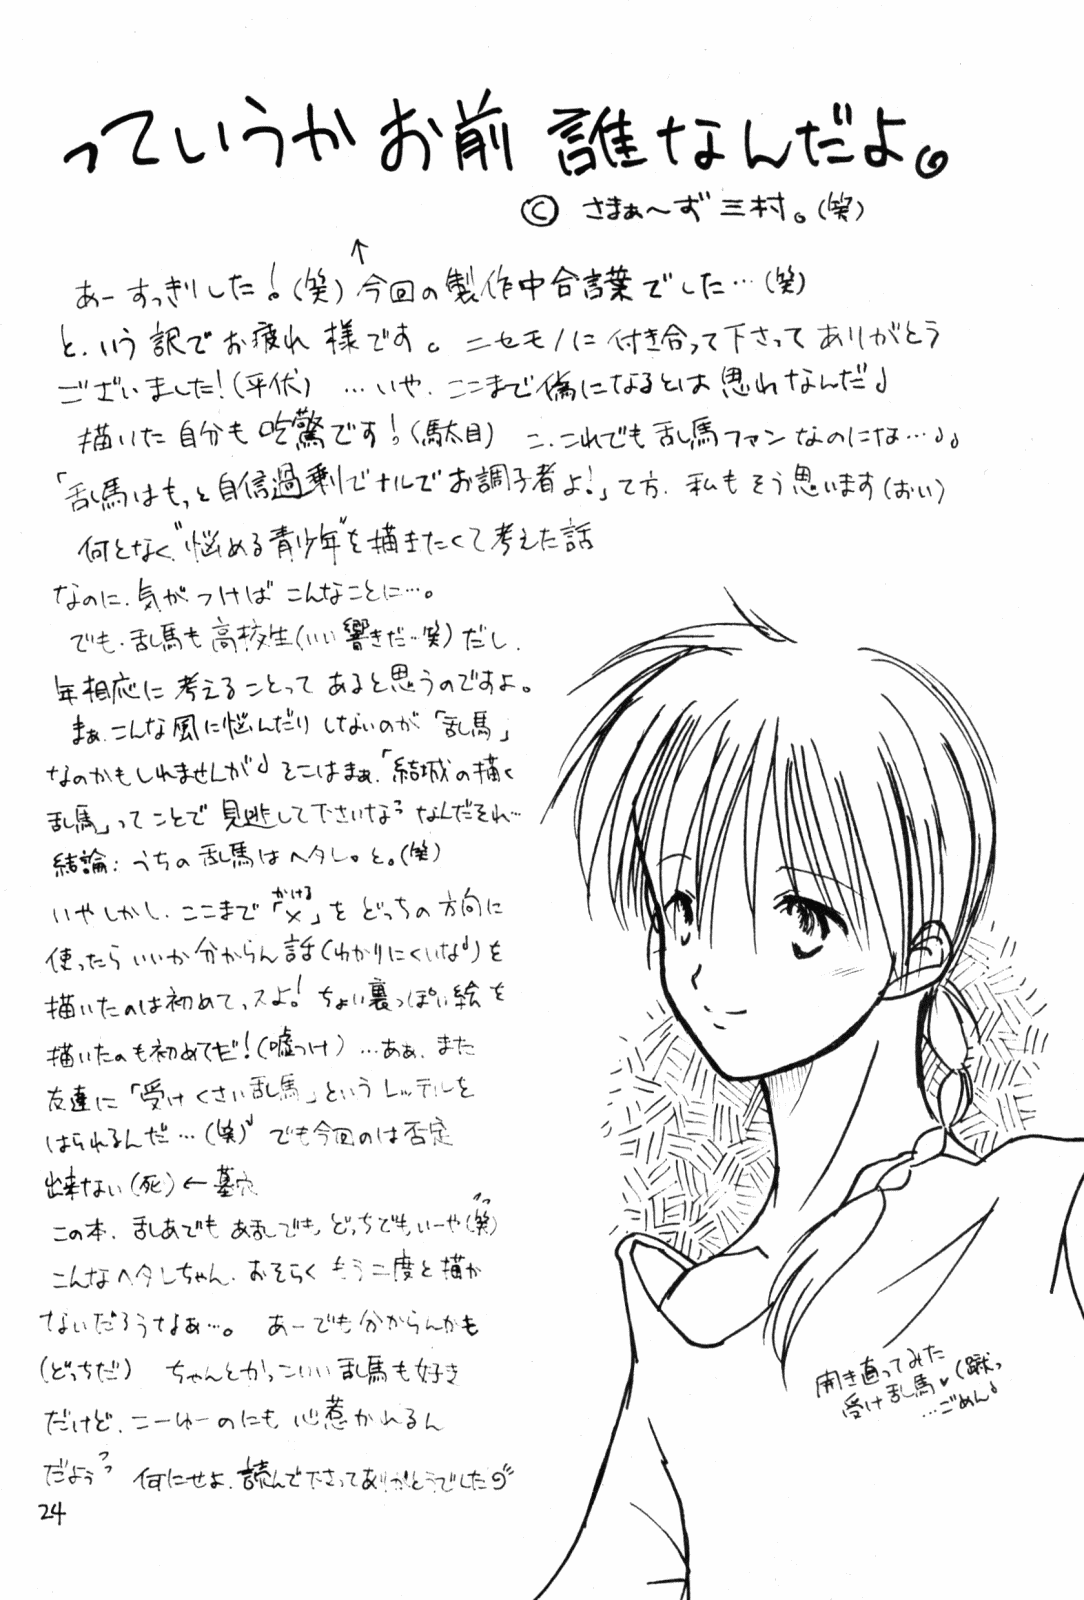 っていうかお前 誰なんだよ。
© さまぁ〜ず三村。(笑)
↑
あーすっきりした!(笑) 今回の製作中合言葉でした…(笑)
と、いう訳でお疲れ様です。ニセモノに付き合って下さってありがとう
ございました!(平伏) …いや、ここまで偽になるとは思わなんだ♪
描いた自分も吃驚です!(駄目) こ、これでも乱馬ファンなのにな…♪♪
「乱馬はもっと自信過剰でナルでお調子者よ!」て方、私もそう思います(おい)
何となく"悩める青少年"を描きたくて考えた話
なのに、気がつけばこんなことに…。
でも、乱馬も高校生(いい響きだ…笑)だし、
年相応に考えることってあると思うのですよ。
まぁ、こんな風に悩んだりしないのが「乱馬」
なのかもしれませんが♪そこはまぁ、「結城の描く
乱馬」ってことで見逃して下さいなっ なんだそれ…
結論:うちの乱馬はヘタレ。と。(笑)
いやしかし、ここまで「×」をどっちの方向に
かける
使ったらいいか分からん話(わかりにくいな)を
描いたのは初めてっスよ!ちょい裏っぽい絵を
描いたのも初めてだ!(嘘つけ) …ああ、また
友達に「受けくさい乱馬」というレッテルを
はられるんだ…(笑) でも今回のは否定
出来ない(死)←墓穴
この本、乱あでもあ乱でも、どっちでもいーや(笑)
こんなヘタレちゃん、おそらくもう二度と描か
ないだろうなぁ…。 あーでも分からんかも
(どっちだ) ちゃんとかっこいい乱馬も好き
だけど、こーゆーのにも心惹かれるん
だよぅっっ 何にせよ、読んで下さってありがとうでした
24
開き直ってみた
受け乱馬♥(蹴っ
…ごめん♪